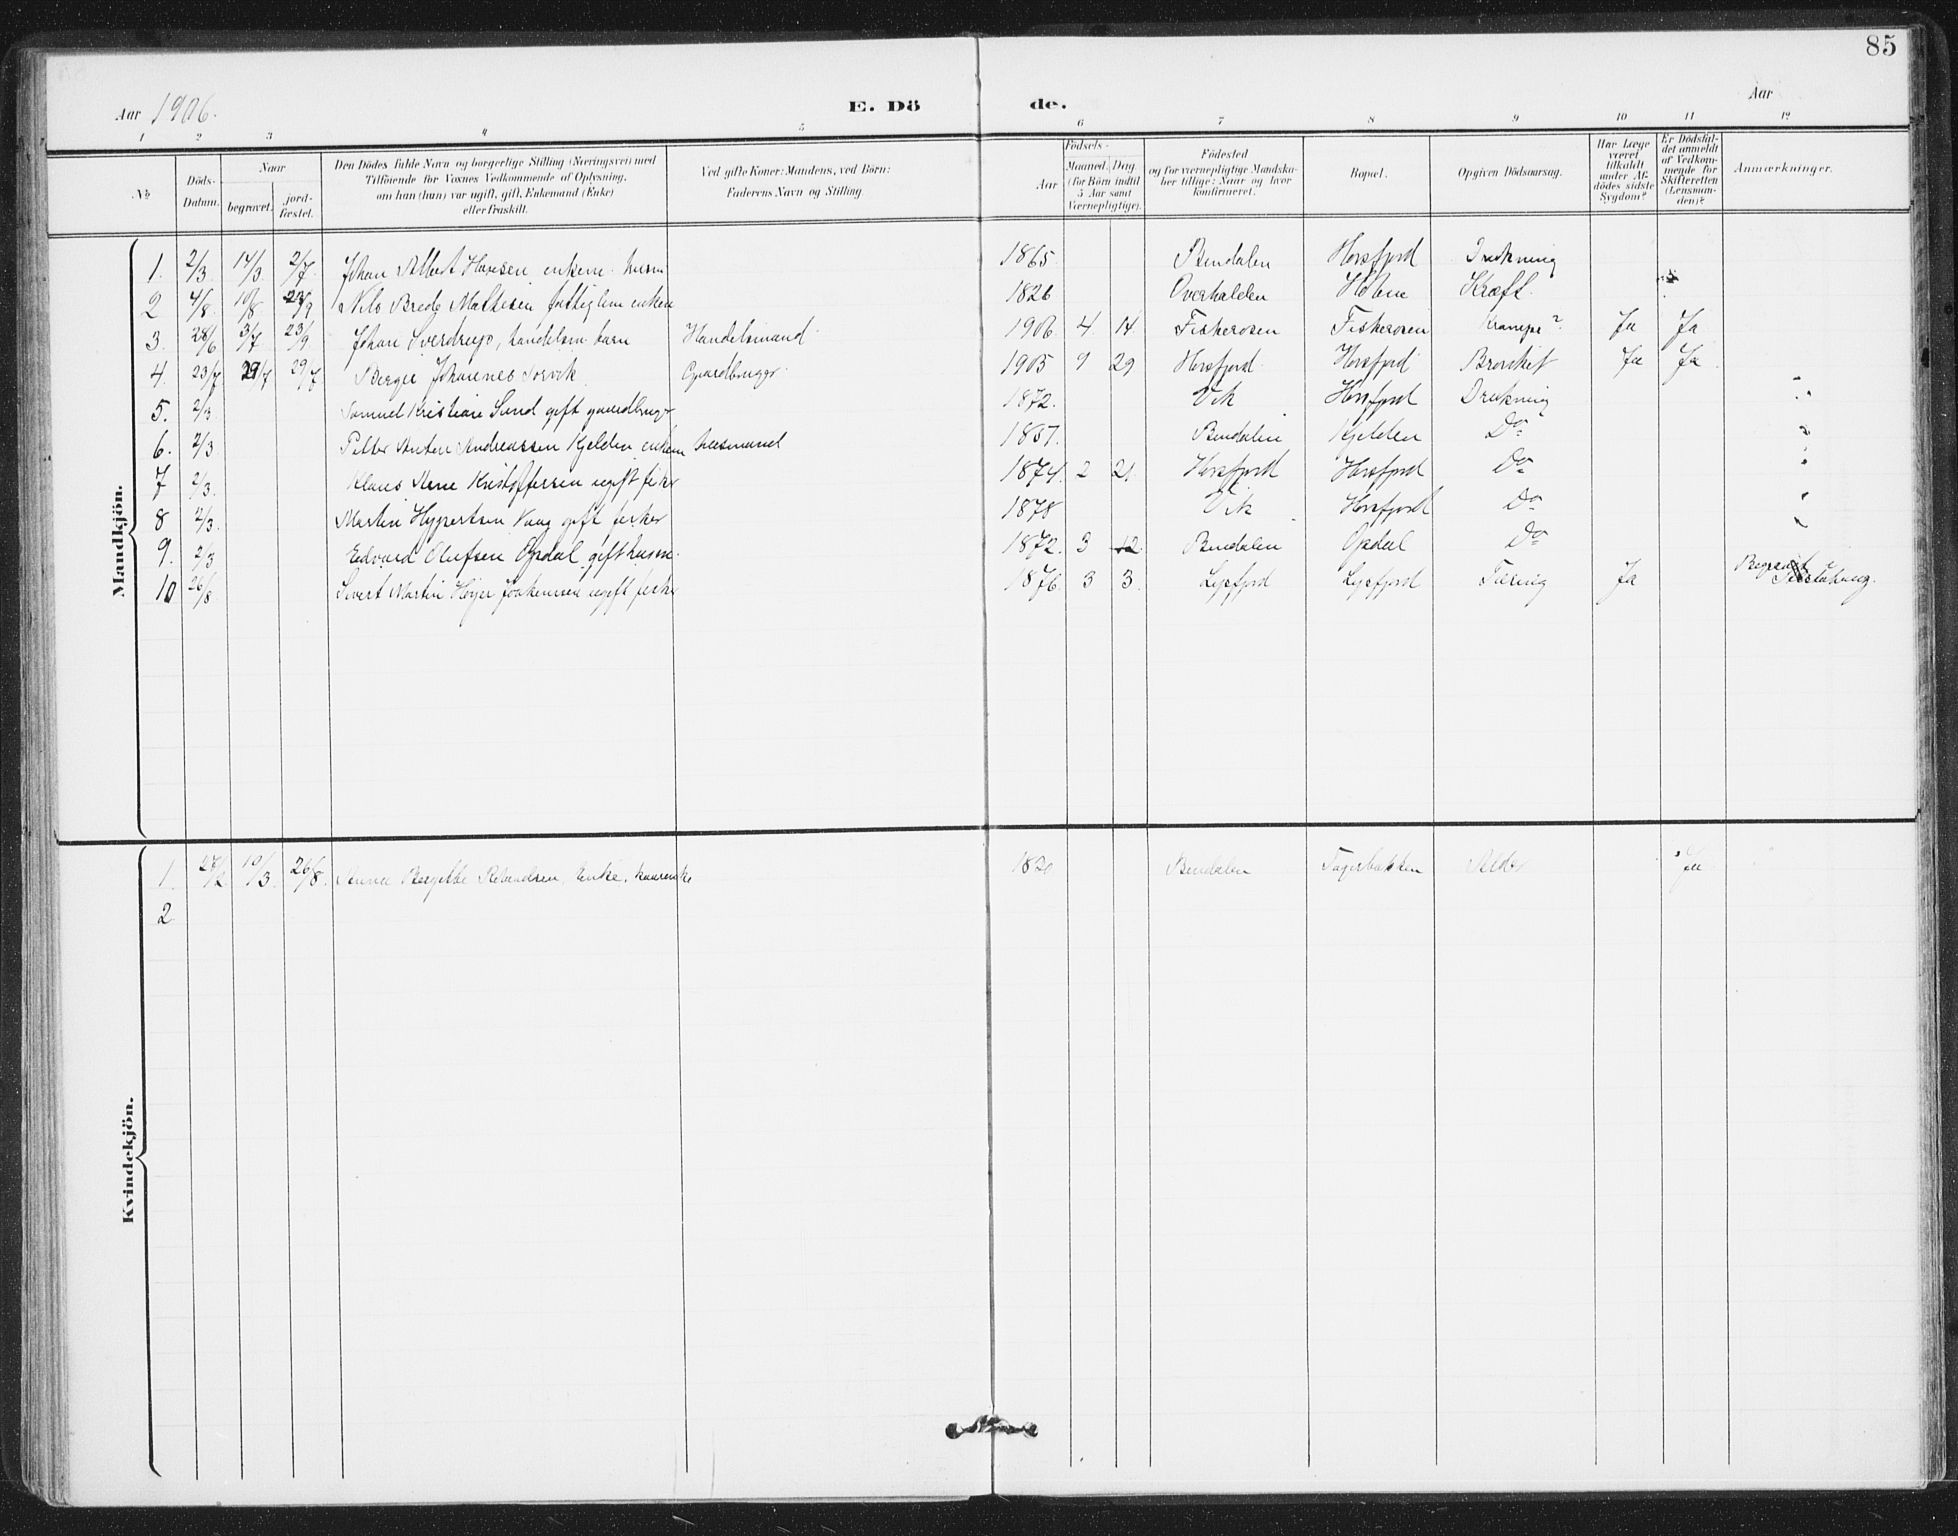 85
Aar 1906.
E. Dö de.
Aar
1 2 3 4 5 6 7 8 9 10 11 12
No
Döds-Datum.
Naar
begravet.
jord-fæstet.
Den Dödes fulde Navn og borgerlige Stilling (Næringsvei) med
Tilföiende for Voxnes Vedkommende af Oplysning,
om han (hun) var ugift, gift, Enkemand (Enke)
eller fraskilt.
Ved gifte Koner: Mandens, ved Börn:
Faderens Navn og Stilling.
Födsels-
Aar
Maaned. Dag.
(for Börn indtil
5 Aar samt
Værnepligtige).
Födested
og for værnepligtige Mandska-
ber tillige: Naar og hvor
konfirmeret.
Bopæl.
Opgiven Dödsaarsag.
Har Læge
været
tilkaldt
under Af-
dödes sidste
Sygdom?
Er Dödsfal-
det anmeldt
af Vedkom-
mende for
Skifteretten
(Lensman-
den)?
Anmærkninger.
Mandkjön.
1. 2/3 14/3 2/7 Johan Albert Hansen enkem. husm 1865 Bindalen Horsfjord Drukning
2 4/8 10/8 23/9 Nils Brede Mathisen fattiglem enkem 1826 Overhalden Holm Kræft
3. 28/6 3/7 23/9 Johan Sverdrup, handelsm. barn Handelsmand 1906 4 14 Fiskerosen Fiskerosen Krampe? Ja Ja
4. 23/7 29/7 29/7 Birger Johannes Sorvik Gaardbruger 1905 9 29 Horsfjord Horsfjord Bronkit Ja Ja
5. 2/3 Samuel Kristian Sund gift gaardbrugr 1872. Vik Horsfjord Drukning "
6. 2/3 Petter Anton Andreassen Kjelden enkem husmand 1857. Bindalen Kjelden Do "
7 2/3. Klaus Arne Kristoffersen ugift fisker 1874 2 21 Horsfjord Horsfjord Do "
8 2/3. Martin Hypertsen Vaag gift fisker 1878 Vik Horsfjord Do "
9. 2/3 Edvard Olufsen Opdal gift husm. 1872. 3 12 Bindalen Opdal Do "
10 26/8 Sivert Martin Höjer Joakimsen ugift fisker 1876 3 3. Lysfjord Lysfjord Tæring Ja Begravet
Kvindekjön.
1. 27/2 10/3 26/8 Anna Bergitte Relandsen, Enke, kaarenke 1820 Bindalen Fagerbakken Alder Ja
2.